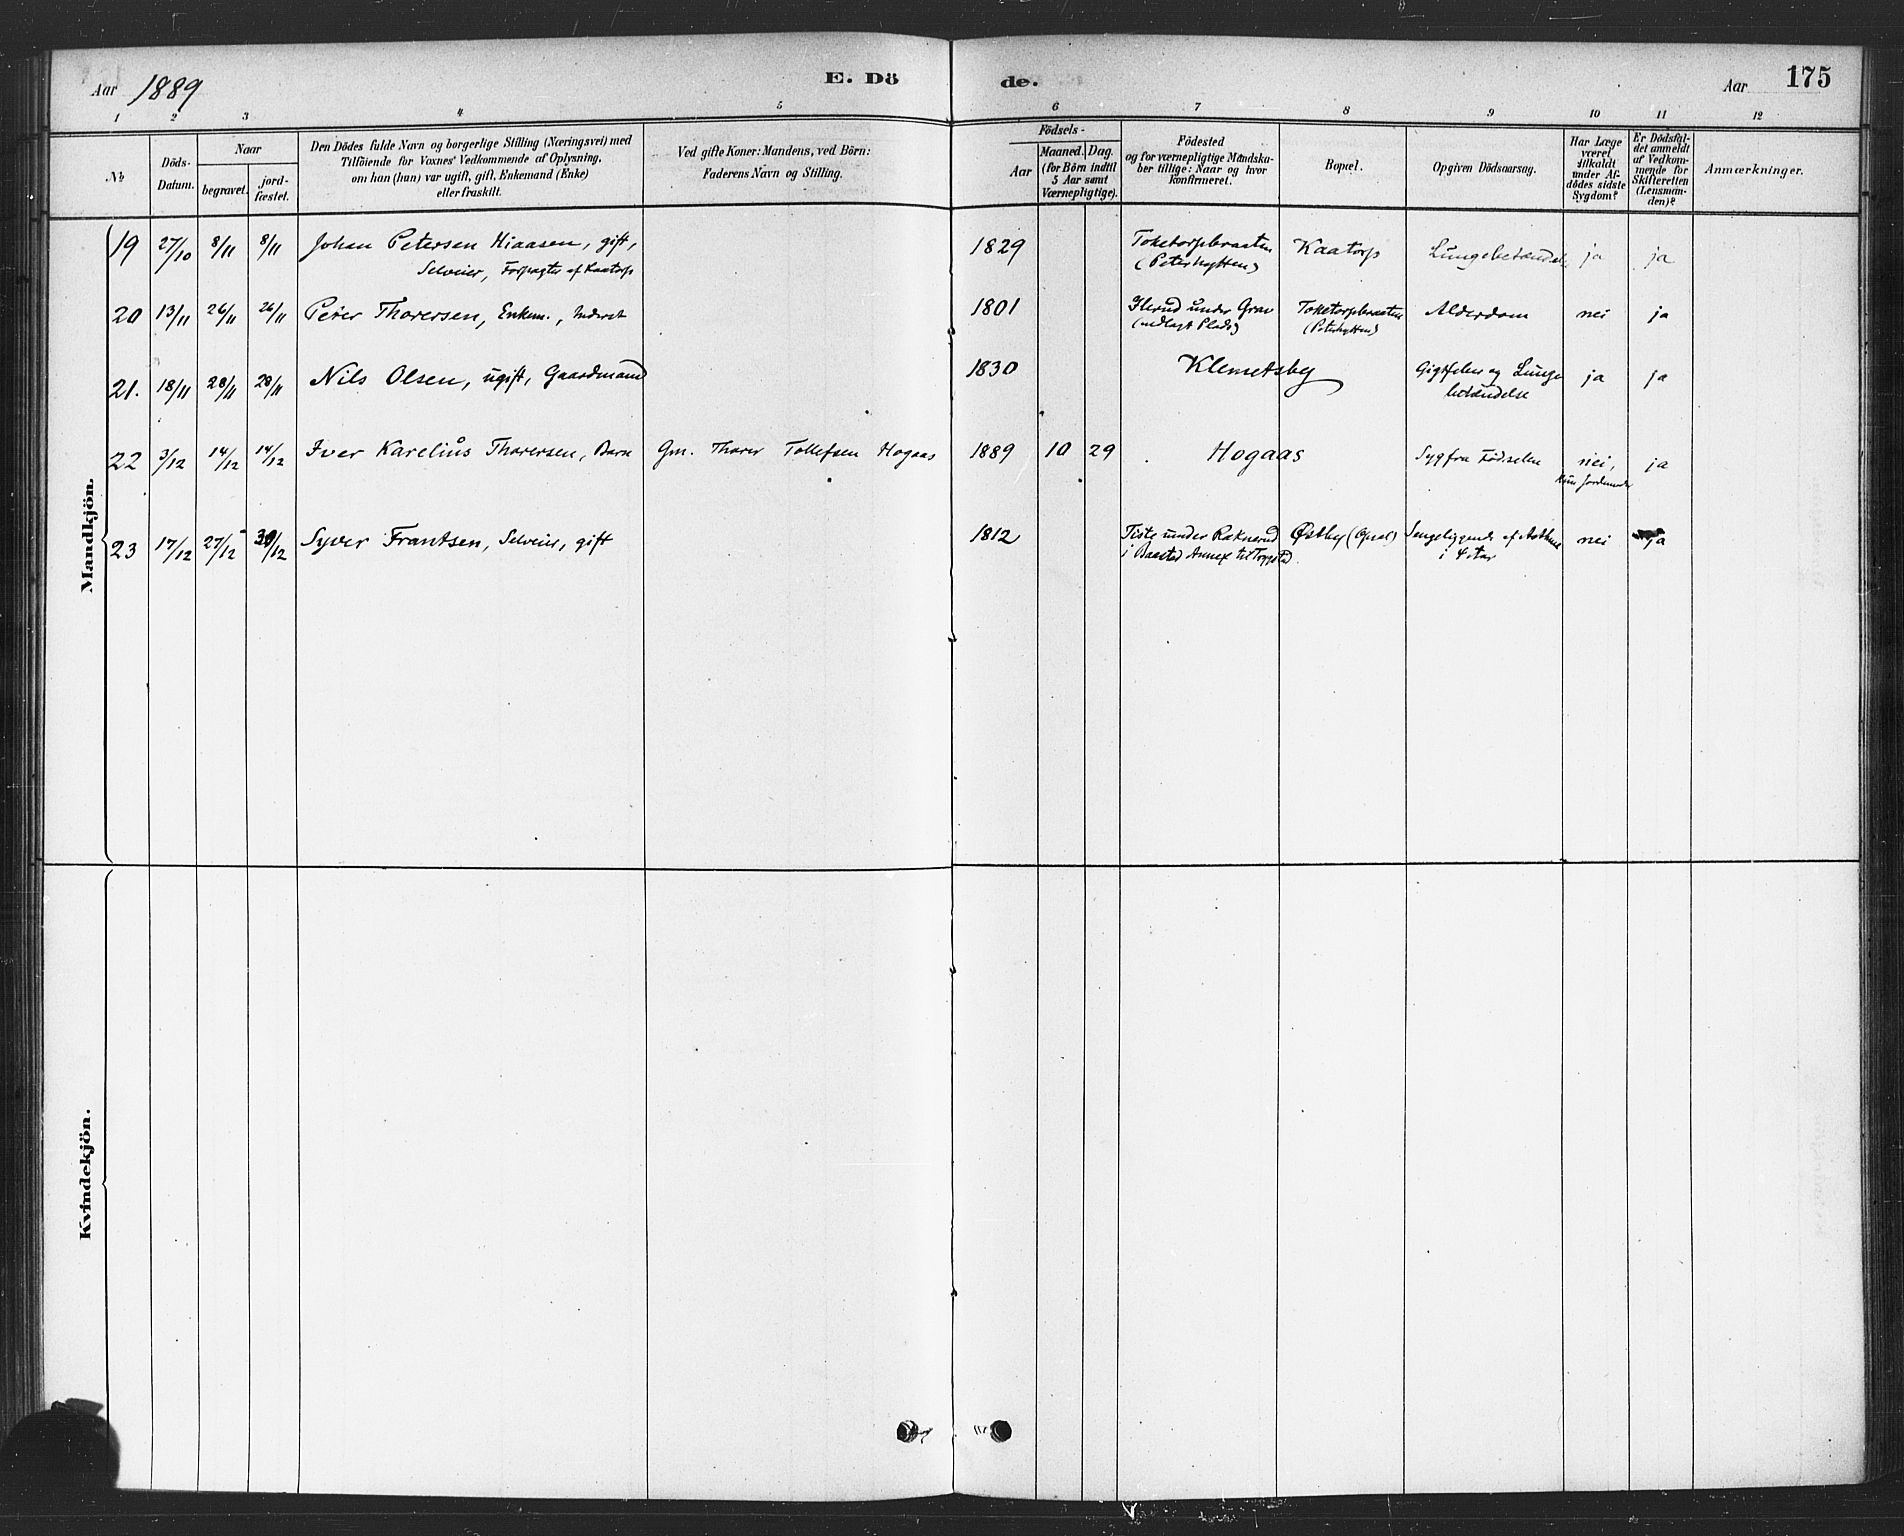 Aar 1889 E. Dö de. Aar 175
1 2 3 4 5 6 7 8 9 10 11 12
No
Döds-Datum.
Naar
begravet.
jord-fæstet.
Den Dödes fulde Navn og borgerlige Stilling (Næringsvei) med
Tilföiende for Voxnes Vedkommende af Oplysning,
om han (hun) var ugift, gift, Enkemand (Enke)
eller fraskilt.
Ved gifte Koner: Mandens, ved Börn:
Faderens Navn og Stilling.
Födsels-
Aar
Maaned. Dag.
(for Börn indtil
5 Aar samt
Værnepligtige).
Födested
og for værnepligtige Mandska-
ber tillige: Naar og hvor
konfirmeret.
Bopæl.
Opgiven Dödsaarsag.
Har Læge
været
tilkaldt
under Af-
dödes sidste
Sygdom?
Er Dödsfal-
det anmeldt
af Vedkom-
mende for
Skifteretten
(Lensman-
den)?
Anmærkninger.
Mandkjön.
19 27/10 8/11 8/11 Johan Petersen Hiaasen, gift, 1829 Toketorpbraaten Kaatorp Lungebetændelse ja ja
Selveier, Forpagter af Kaatorp (Peterhytten)
20 13/11 26/11 26/11 Peter Thorersen, Enkem., Inderst 1801 Ilerud under Grav Toketorpbraaten Alderdom nei ja
(nedlagt Plads) (Peterhytten)
21. 18/11 28/11 28/11 Nils Olsen, ugift, Gaardmand 1830 Klemetsby Gigtfeber og Lunge ja ja
betændelse
22 3/12 14/12 14/12 Iver Karelius Thorersen, Barn Gm. Thorer Tollefsen Hogaas 1889 10 29 Hogaas Syg fra Fødselen nei, ja
kun Jordemoder
23 17/12 27/12 30/12 Syver Frantsen, Selveier, gift 1812 Tiste under Raknerud Østby Sengeliggende af Asthma nei ja
i Baastad Annex til Trygstad i 4 Aar
Kvindekjön.